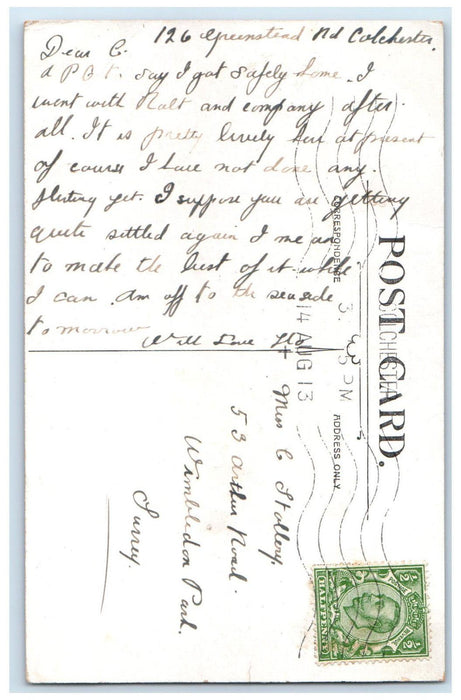 126 Greenstead Rd Colchester.
Dear C.
a P.B t. say I got safely home. I
went with Nalt and company after
all. It is pretty lively here at present
of course I have not done any
flirting yet. I suppose you are getting
quite settled again I mean
to make the best of it while
I can. Am off to the seaside
tomorrow
With Love Flo
POST CARD.
CORRESPONDENCE
ADDRESS ONLY
COLCHESTER
3. 5 PM
14 AUG 13
Miss C Stollery.
53 Arthur Road.
Wimbledon Park.
Surrey
1/2
1/2
HALFPENNY